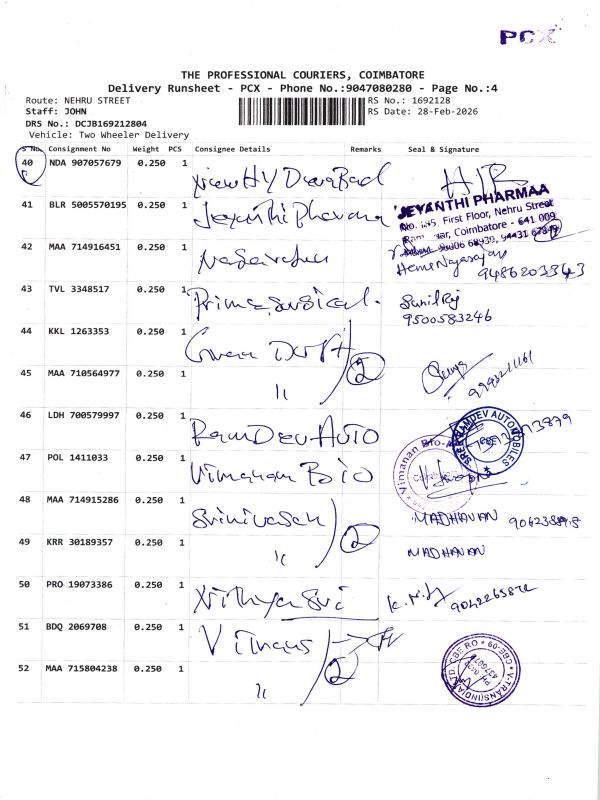 PCX
THE PROFESSIONAL COURIERS, COIMBATORE
Delivery Runsheet - PCX - Phone No.:9047080280 - Page No.:4
Route: NEHRU STREET
RS No.: 1692128
Staff: JOHN
RS Date: 28-Feb-2026
DRS No.: DCJB169212804
Vehicle: Two Wheeler Delivery
S No Consignment No Weight PCS Consignee Details Remarks Seal & Signature
40 NDA 907057679 0.250 1
41 BLR 5005570195 0.250 1 Jeyanthi Pharma
JEYANTHI PHARMAA
First Floor, Nehru Street
Coimbatore - 641 009
42 MAA 714916451 0.250 1
Hema Nagarajan
9486203343
43 TVL 3348517 0.250 1 Prime Surgical. Sunil Raj
9500583246
44 KKL 1263353 0.250 1
2
45 MAA 710564977 0.250 1 "
46 LDH 700579997 0.250 1 Ram Dev AUTO
SREE RAMDEV AUTOMOBILES
47 POL 1411033 0.250 1 Vimanam Bio
Vimanan Bio
48 MAA 714915286 0.250 1 Srinivasan MADHAVAN
2
49 KRR 30189357 0.250 1 " MADHAVAN
50 PRO 19073386 0.250 1 Nithya Sri
51 BDQ 2069708 0.250 1 V Trans
2
52 MAA 715804238 0.250 1 "
V-TRANS(INDIA)LTD. CBE.RO * CBE-09